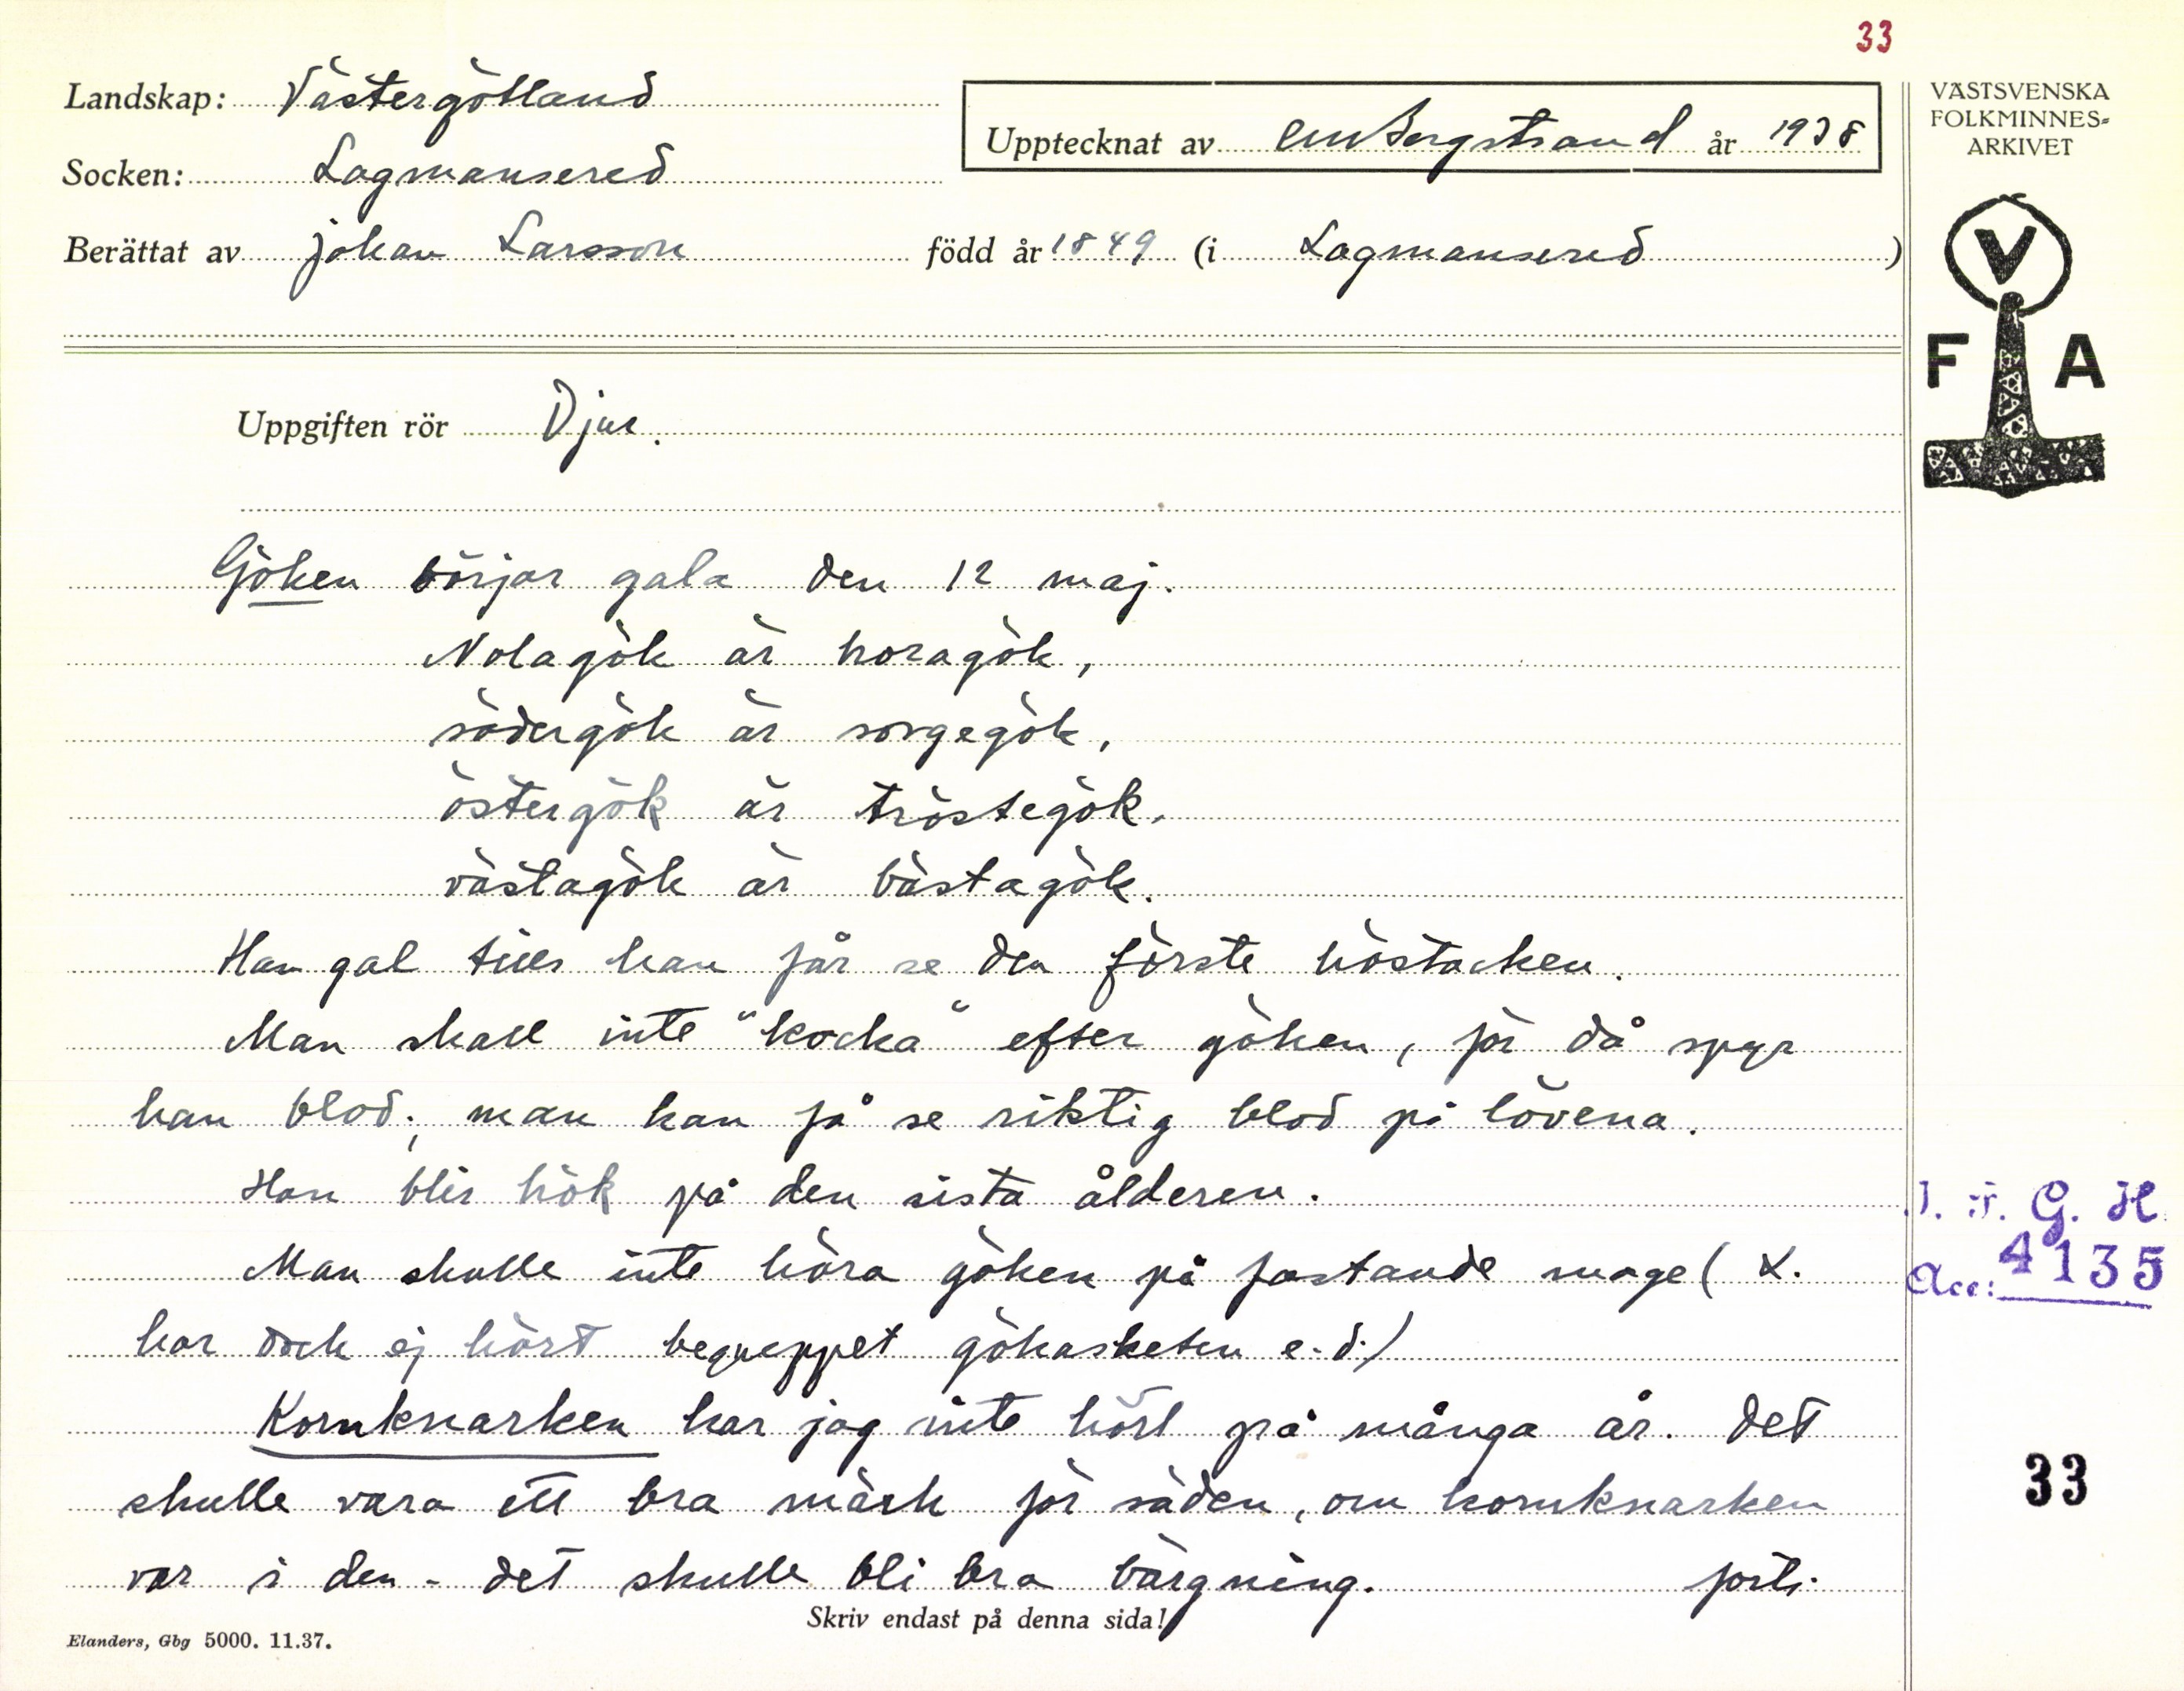 33
Landskap: Västergötland
Upptecknat av CM Bergstrand år 1938
VÄSTSVENSKA
FOLKMINNES-
ARKIVET
Socken: Lagmansered
Berättat av Johan Larsson född år 1849 (i Lagmansered )
V
F A
Uppgiften rör Djur.
Göken börjar gala den 12 maj.
Nolagök är horagök,
södergök är sorgegök,
östergök är tröstegök,
västagök är bästagök.
Han gal tills han får se den förste höstacken.
Man skall inte "kocka" efter göken, för då spyr
han blod; man kan få se riktig blod på lövena.
Han blir hök på den sista ålderen.
Man skulle inte höra göken på fastande mage ( L.
har dock ej hört begreppet gökasketen e.d.)
Kornknarken har jag inte hört på många år. Det
skulle vara ett bra märk för säden, om kornknarken
var i den - det skulle bli bra bärgning. forts.
I. F. G. H
Acc: 4135
33
Skriv endast på denna sida!
Elanders, Gbg 5000. 11.37.